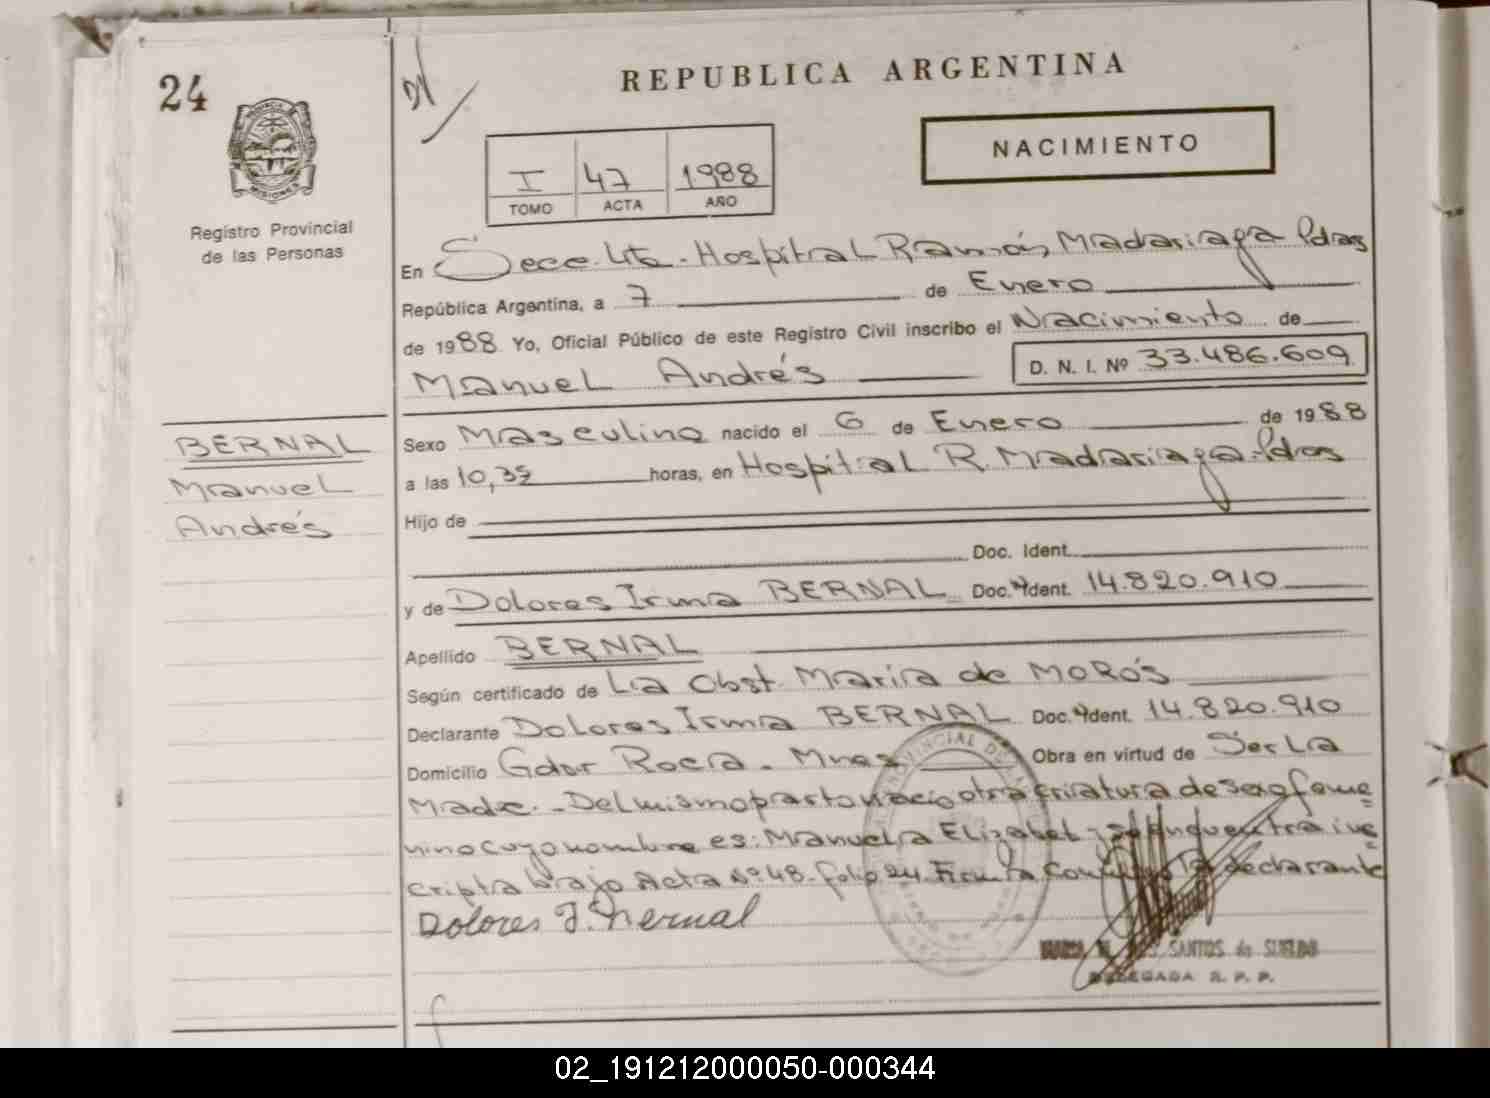 24
REPUBLICA ARGENTINA
NACIMIENTO
I 47 1988
TOMO ACTA AÑO
PROVINCIA
MISIONES
Registro Provincial
de las Personas
En Secc. Hospital Ramón Madariaga Pdas
República Argentina, a 7 de Enero
de 1988 Yo, Oficial Público de este Registro Civil inscribo el Nacimiento de
Manuel Andrés D. N. I. Nº 33.486.609
BERNAL
Manuel
Andrés
Sexo Masculino nacido el 6 de Enero de 1988
a las 10,35 horas, en Hospital R. Madariaga-Pdas
Hijo de
Doc. Ident.
y de Dolores Irma BERNAL Doc. Ident. 14.820.910
Apellido BERNAL
Según certificado de La Obst. María de MOROS
Declarante Dolores Irma BERNAL Doc. Ident. 14.820.910
Domicilio Gdor Roca - Mnes Obra en virtud de Ser La
Madre.- Del mismo parto nacio otra criatura de sexo feme
nino cuyo nombre es: Manuela Elizabet y se encuentra ins
cripta bajo Acta Nº 48. folio 24. Firma la declarante
Dolores I. Bernal
SANTOS de SUELDO
DELEGADA R. P. P.
02_191212000050-000344